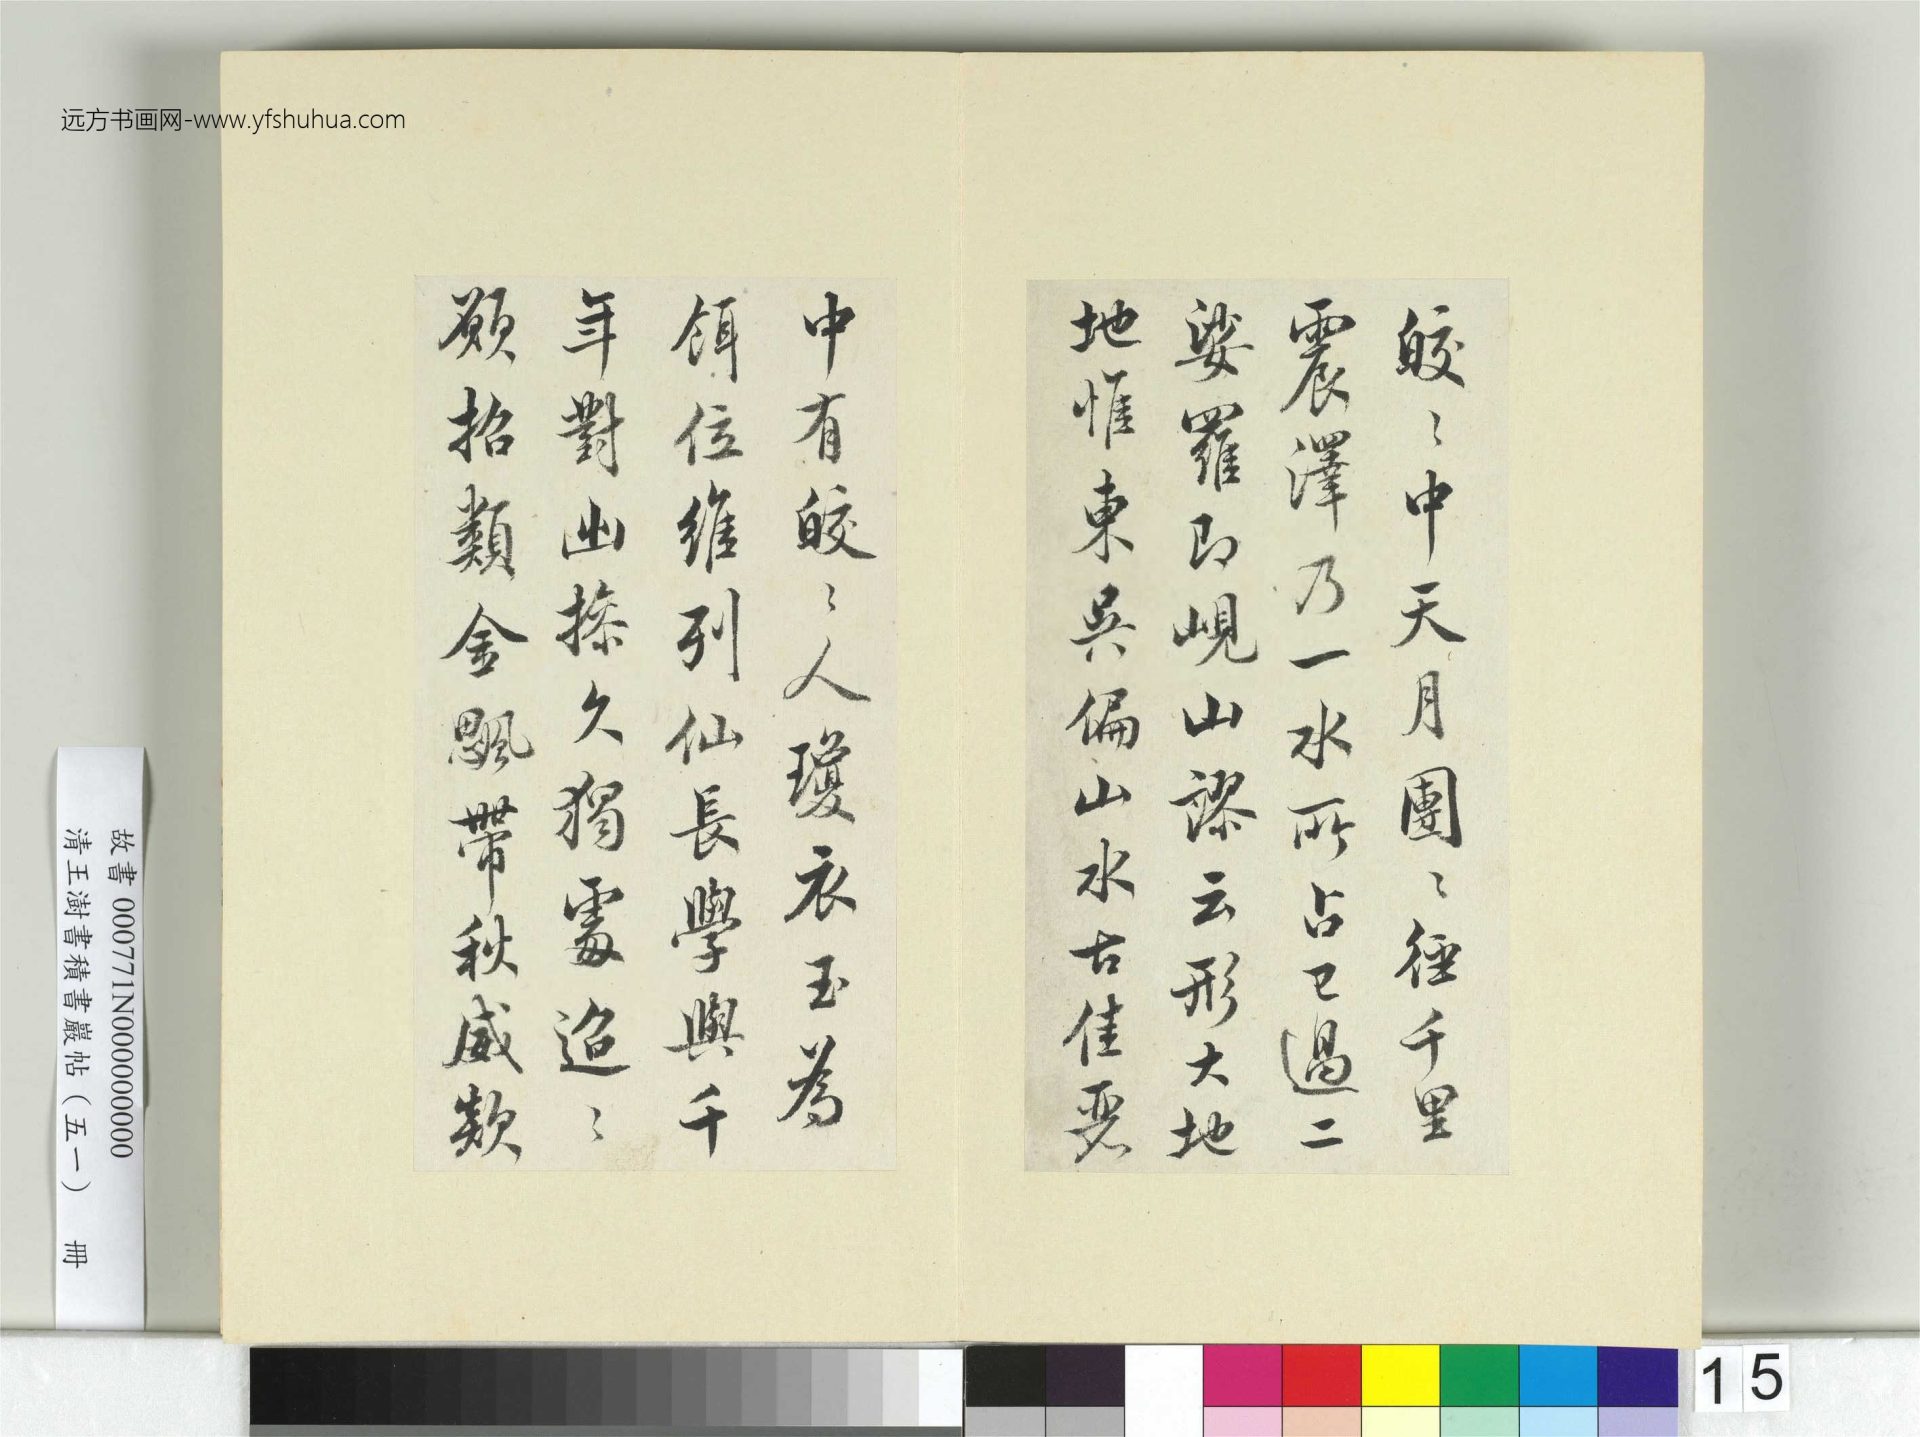 远方书画网-www.yfshuhua.com
皎〻中天月團〻徑千里
震澤乃一水所占已過二
娑羅即峴山謬云形大地
地惟東吳偏山水古佳麗
中有皎〻人瓊衣玉為
餌位維列仙長學與千
年對幽操久獨處迢〻
願招類金飈帶秋威欻
故書 000771N000000000
清王澍書積書巖帖(五一) 冊
15